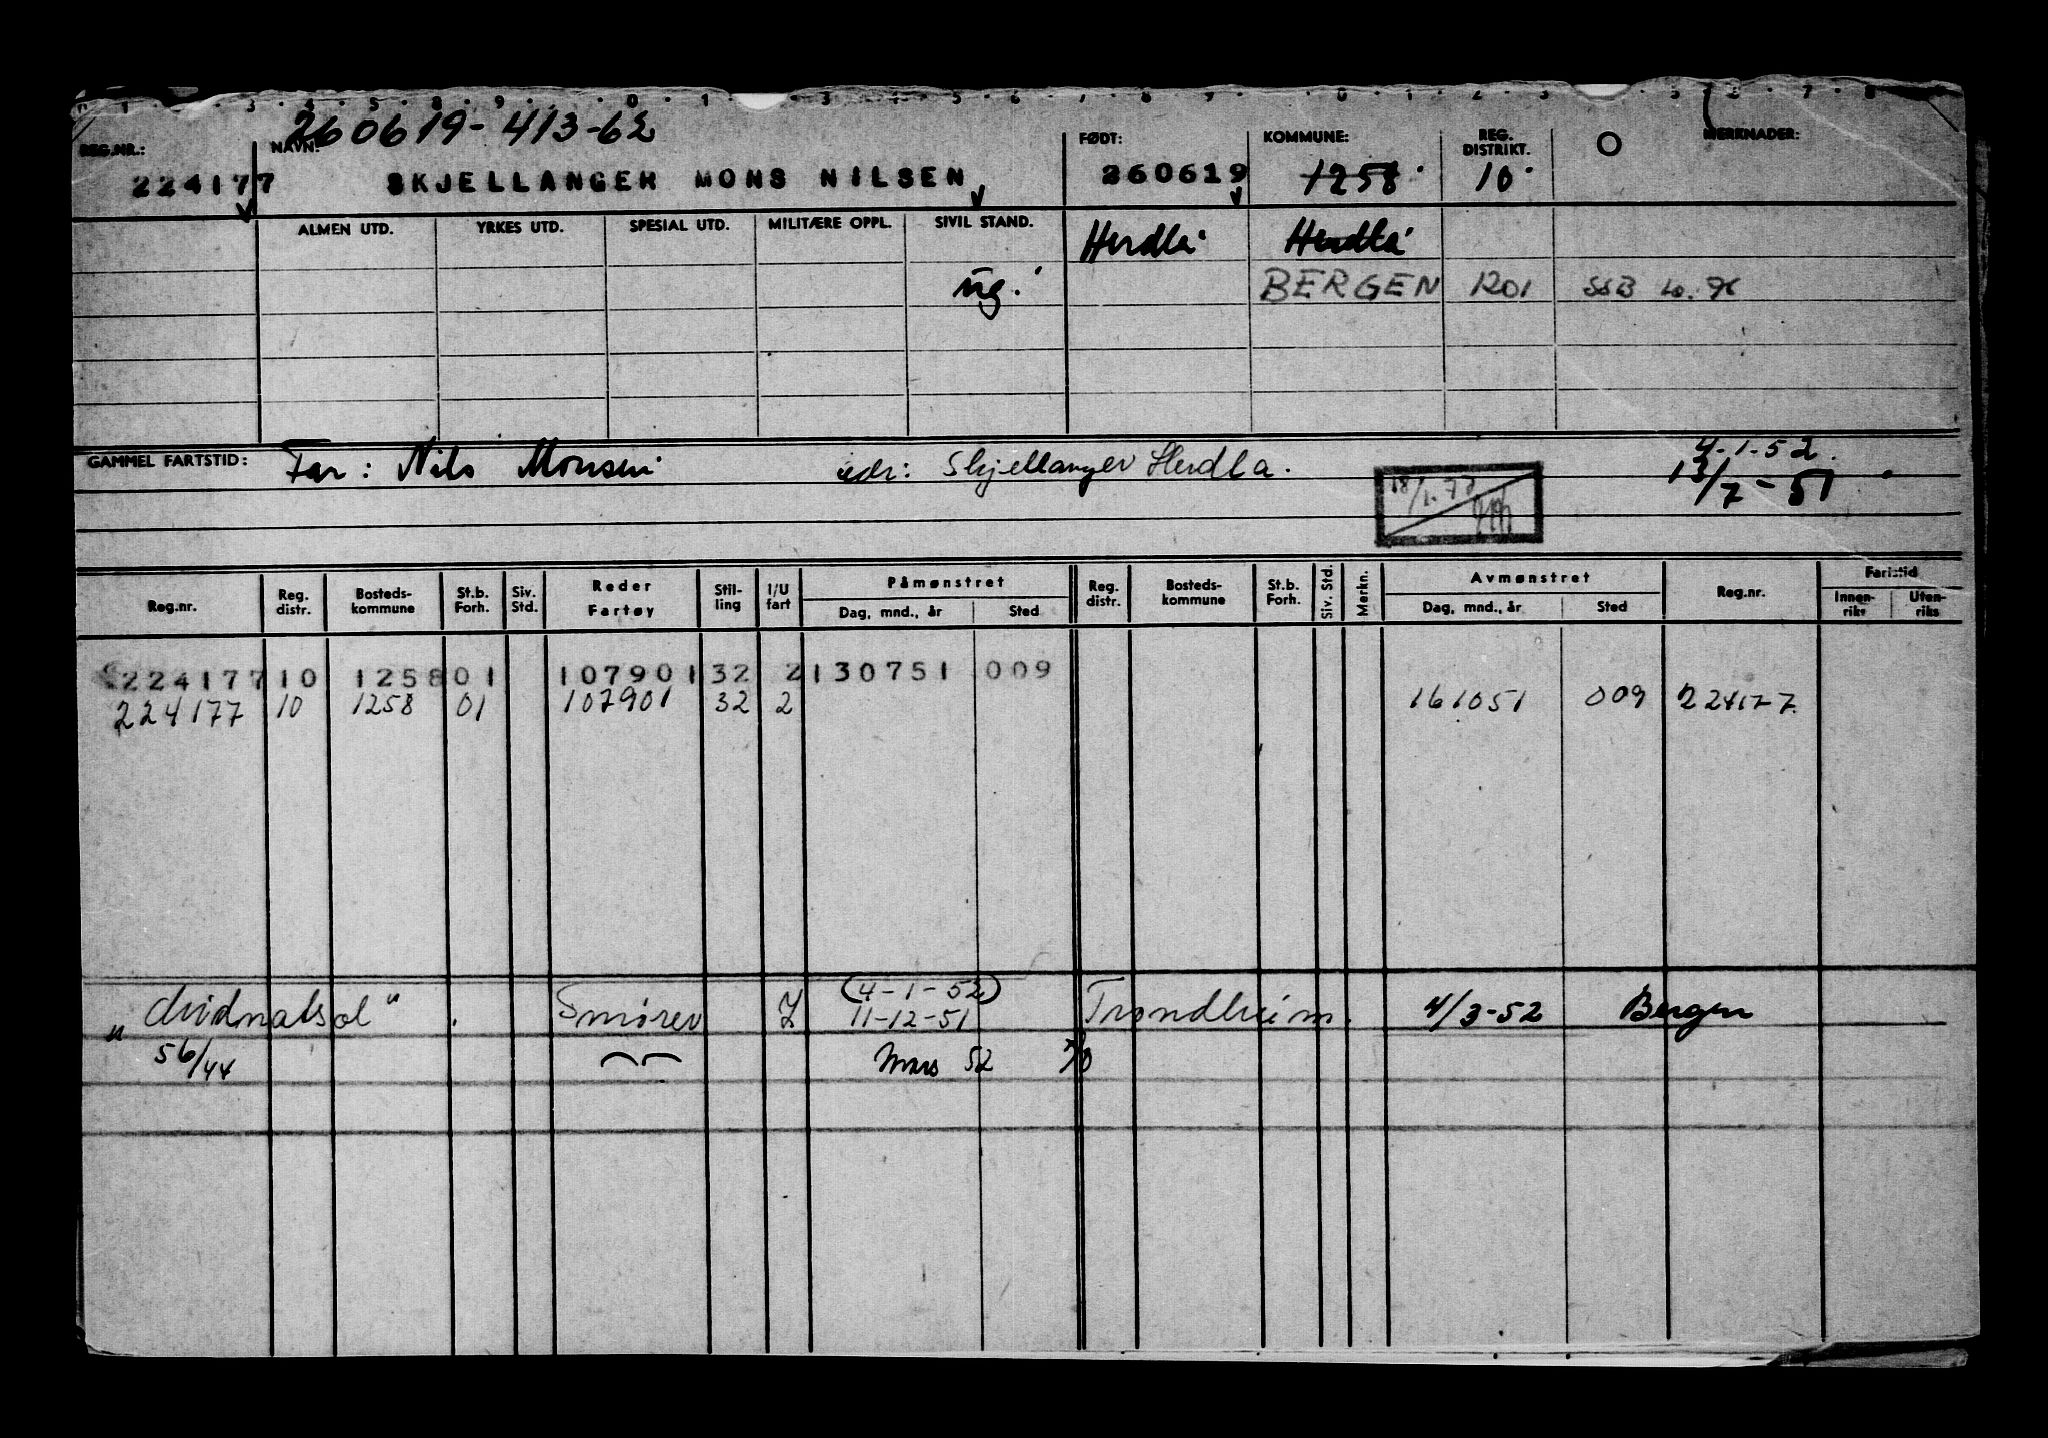 260619-413-62
REG.NR.: NAVN: FØDT: KOMMUNE: REG. DISTRIKT. MERKNADER:
224177 SKJELLANGER MONS NILSEN 260619 1258 10
ALMEN UTD. YRKES UTD. SPESIAL UTD. MILITÆRE OPPL. SIVIL STAND. Herdla Herdla
ug. BERGEN 1201 SSB
GAMMEL FARTSTID: Far: Nils Monsen adr: Skjellanger Herdla. 4-1-52.
13/7-51
Reg.nr. Reg. distr. Bosteds-kommune St.b. Forh. Siv. Std. Reder Fartøy Stil-ling I/U fart Påmønstret Dag, mnd., år Sted Reg. distr. Bosteds-kommune St.b. Forh. Siv. Std. Merkn. Avmønstret Dag, mnd., år Sted Reg.nr. Fartstid Innen-riks Uten-riks
224177 10 1258 01 107901 32 2 130751 009
224177 10 1258 01 107901 32 2 161051 009 224177
(4-1-52)
"Midnatsol". Smører 11-12-51 Trondheim. 4/3-52 Bergen
56/44 Mars 52